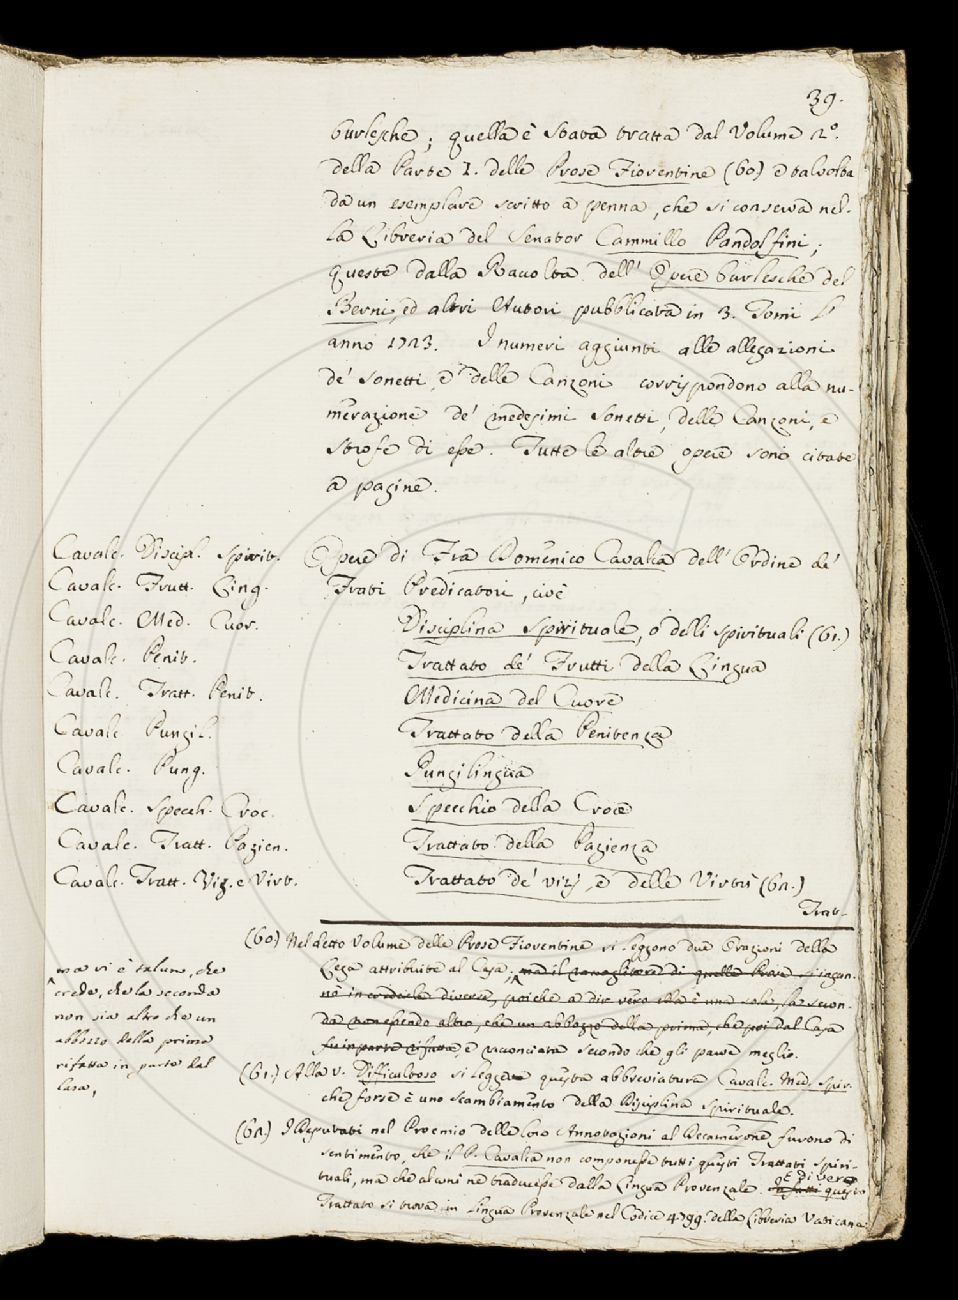 39.
burlesche; quella è stata tratta dal Volume 2°.
della Parte I. delle Prose Fiorentine (60) e talvolta
da un esemplare scritto a penna, che si conserva nel-
la Libreria del Senator Cammillo Pandolfini;
queste dalla Raccolta dell' Opere burlesche del
Berni, ed altri Autori pubblicata in 3. Tomi l'
anno 1723. I numeri aggiunti alle allegazioni
de' Sonetti, e delle Canzoni corrispondono alla nu-
merazione de' medesimi Sonetti, delle Canzoni, e
strofe di esse. Tutte le altre opere sono citate
a pagine.
Cavalc. Discipl. Spirit. Opere di Fra Domenico Cavalca dell' Ordine de'
Cavalc. Frutt. Ling. Frati Predicatori, cioè
Cavalc. Med. Cuor. Disciplina Spirituale, o delli Spirituali (61.)
Cavalc. Penit. Trattato de' Frutti della Lingua
Cavalc. Tratt. Penit. Medicina del Cuore
Cavalc. Pungil. Trattato della Penitenza
Cavalc. Pung. Pungilingua
Cavalc. Specch. Croc. Specchio della Croce
Cavalc. Tratt. Pazien. Trattato della Pazienza
Cavalc. Tratt. Viz. e Virt. Trattato de' vizj, e delle Virtù (62.)
Trat-
(60) Nel detto Volume delle Prose Fiorentine si leggono due Orazioni della
Lega attribuite al Casa; ma il raccoglitore di quelle Prose si ingan-
nò in crederle diverse, poichè a dir vero ella è una sola, la secon-
da non essendo altro, che un abbozzo della prima, che poi dal Casa
fu in parte rifatta, e racconciata secondo che gli parve meglio.
ma vi è taluno, che
crede, che la seconda
non sia altro che un
abbozzo della prima
rifatta in parte dal
Casa,
(61.) Alla v. Difficultoso si legge questa abbreviatura Cavalc. Med. Spir.
che forse è uno scambiamento della Disciplina Spirituale.
(62.) I Deputati nel Proemio delle loro Annotazioni al Decamerone furono di
sentimento, che il P. Cavalca non componesse tutti questi Trattati Spiri-
tuali, ma che alcuni ne traducesse dalla Lingua Provenzale. E di vero
questo
Trattato si trova in Lingua Provenzale nel Codice 4799. della Libreria Vaticana